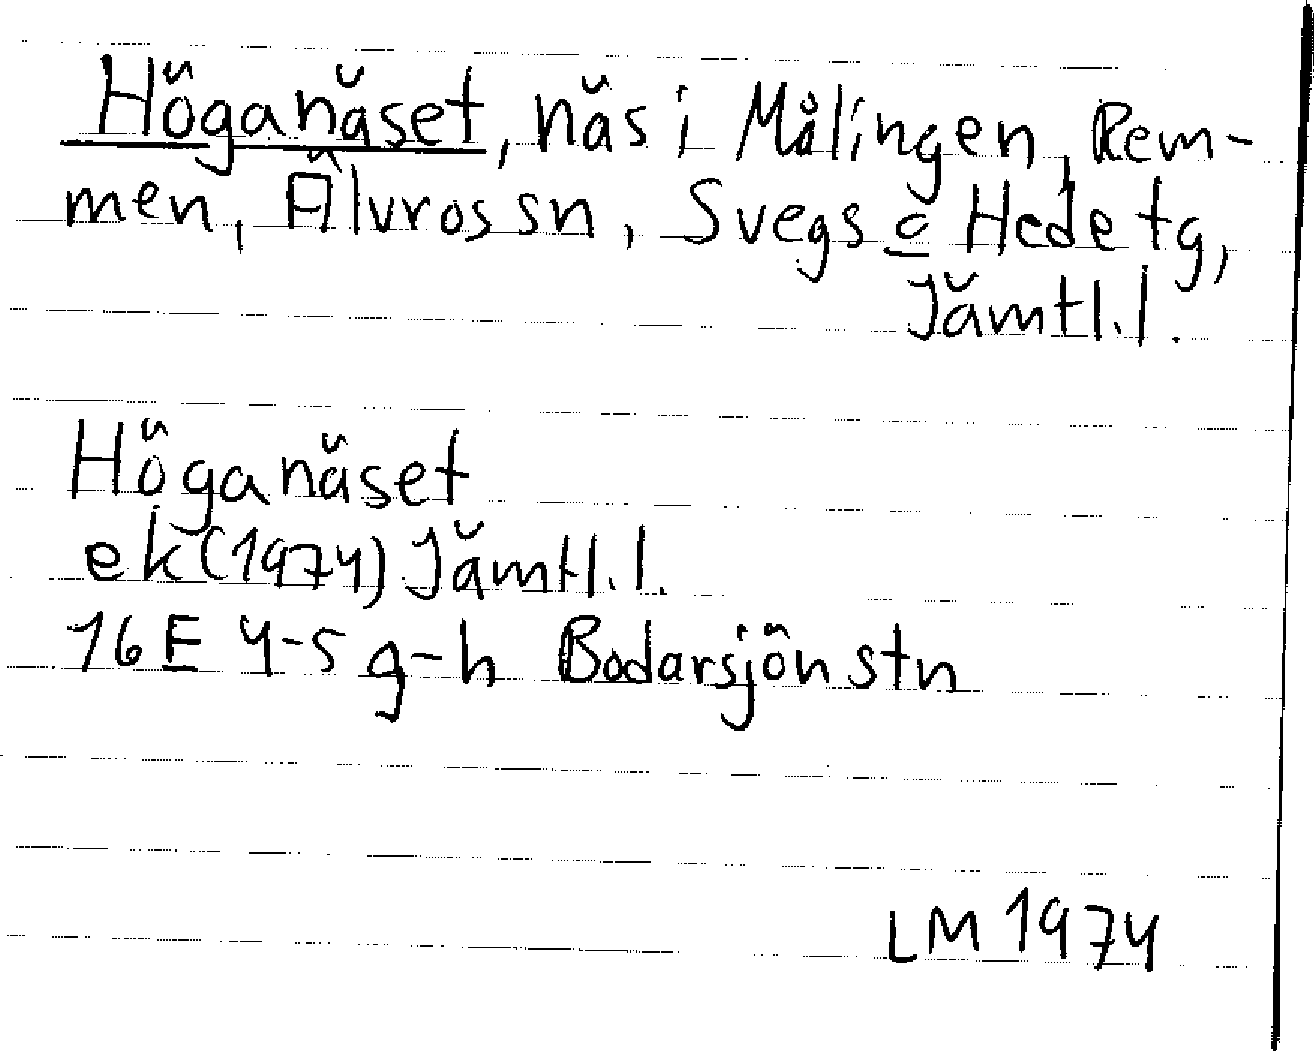 Höganäset, näs i Målingen, Rem-
men, Älvros sn, Svegs o Hede tg,
Jämtl.l.
Höganäset
ek (1974) Jämtl.l.
16 E 4-5 g-h Bodarsjön stn
LM 1974